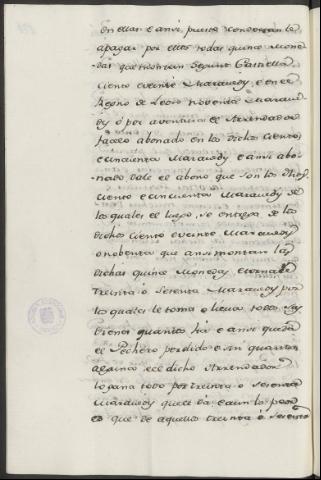 en ellas e ansi puesta condenan le
apagar por ellas todas quince mone
das que montan segunt Castiella
ciento e veinte Maravedis, e en el
Regno de Leon noventa Maravi
dis, o por aventura el Arrendador
facelo abonado en los dichos ciento,
e cinquenta Maravedis e ansi abo
nado dale el abono que son los dhos
ciento e cincuenta Maravedis de
los quales el luego se entrega de los
dichos ciento e veinte Maravedis
o nobenta que ansi montan las
dichas quince Monedas e tornale
treinta o sesenta Maravedis por
los quales le toma o lieva todos sus
bienes quantos ha e ansi queda
el Pechero perdido e sin quantia
alguna e el dicho Arrendador
lo gana todo por treinta o sesenta
Maravedis que el da e aun lo peor
es que de aquellos treinta o sesenta